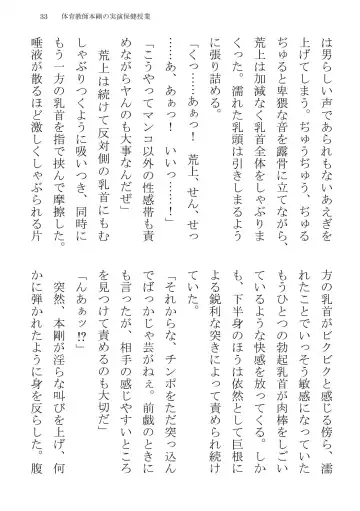 33　体育教師本剛の実演保健授業
は男らしい声であられもないあえぎを
上げてしまう。ぢゅうぢゅう、ぢゅる
ぢゅると卑猥な音を露骨に立てながら、
荒上は加減なく乳首全体をしゃぶりま
くった。濡れた乳頭は引きしまるよう
に張り詰める。
「くっ……あぁっ！　荒上、せん、せっ
……あ、あぁっ！　いいっ……！」
「こうやってマンコ以外の性感帯も責
めながらヤんのも大事なんだぜ」
　荒上は続けて反対側の乳首にもむ
しゃぶりつくように吸いつき、同時に
もう一方の乳首を指で挟んで摩擦した。
唾液が散るほど激しくしゃぶられる片
方の乳首がビクビクと感じる傍ら、濡
れたことでいっそう敏感になっていた
もうひとつの勃起乳首が肉棒をしごい
ているような快感を放ってくる。しか
も、下半身のほうは依然として巨根に
よる鋭利な突きによって責められ続け
ていた。
「それからな、チンポをただ突っ込ん
でばっかじゃ芸がねぇ。前戯のときに
も言ったが、相手の感じやすいところ
を見つけて責めるのも大切だ」
「んあぁッ!?」
　突然、本剛が淫らな叫びを上げ、何
かに弾かれたように身を反らした。腹